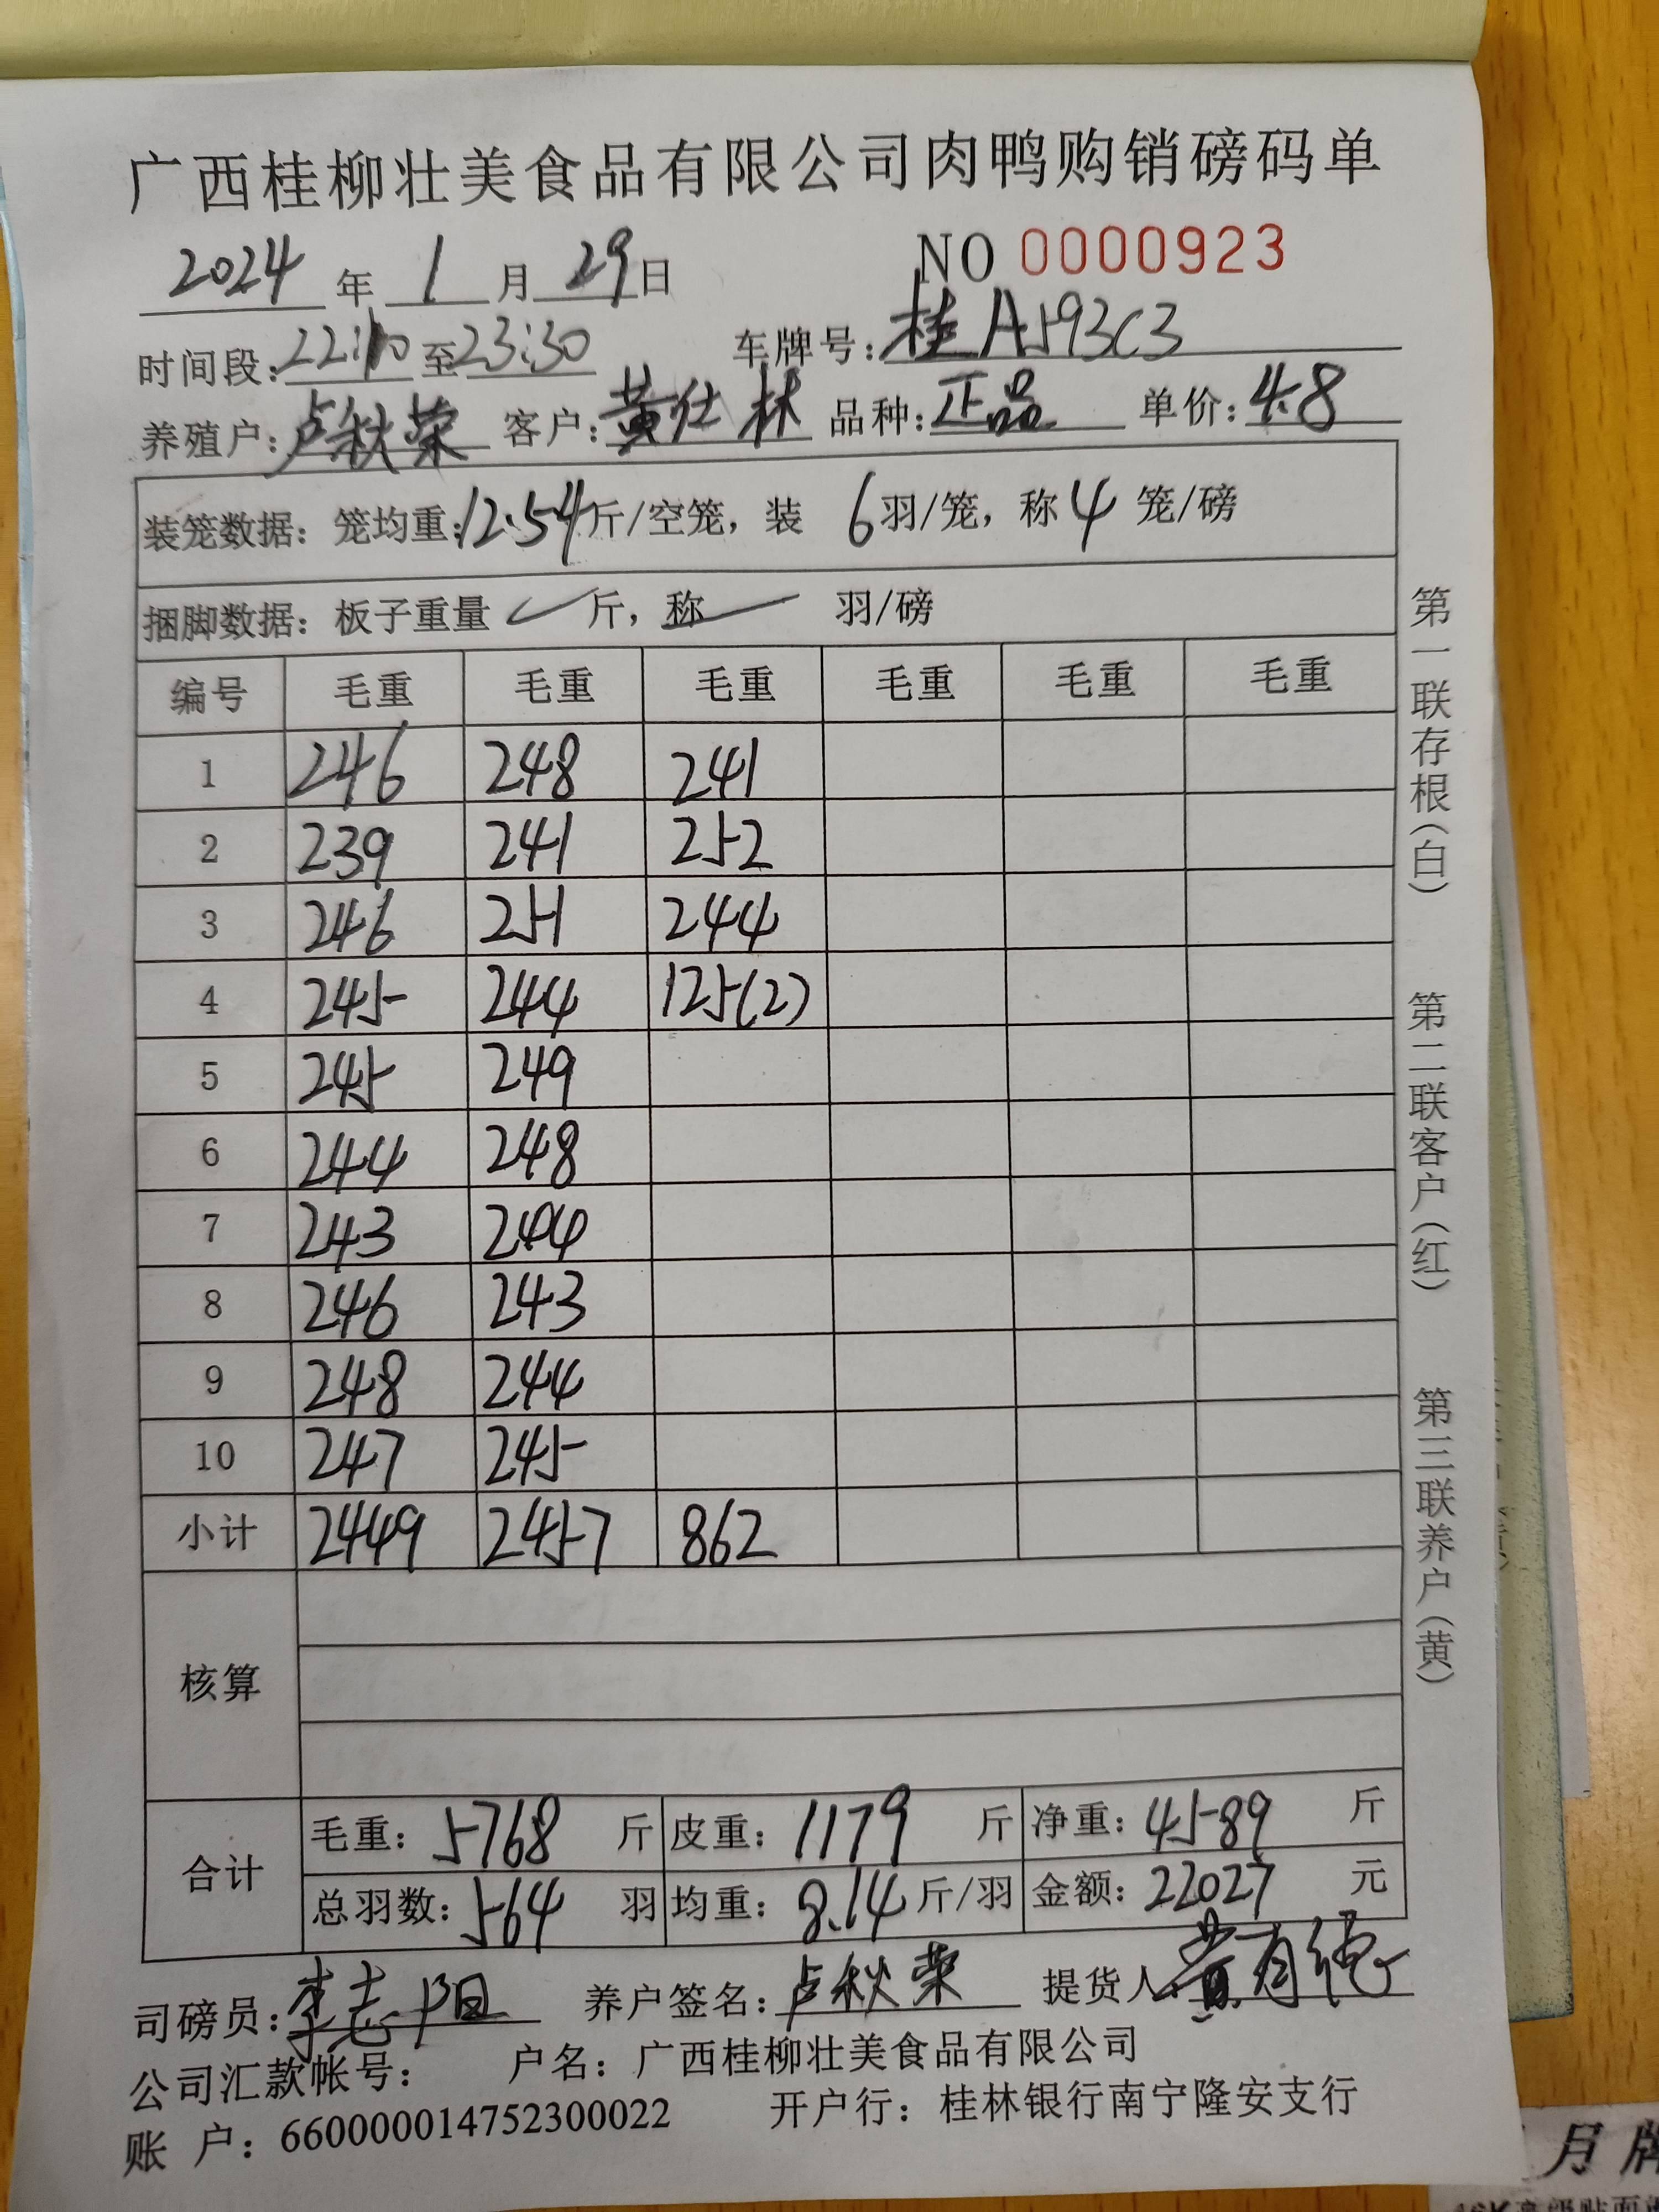 广西桂柳壮美食品有限公司肉鸭购销磅码单
2024 年 1 月 29 日 NO 0000923
时间段：22:10 至 23:30 车牌号：桂AJ93C3
养殖户：卢秋荣 客户：黄仕林 品种：正品 单价：4.8
装笼数据：笼均重：12.54斤/空笼，装 6羽/笼，称4 笼/磅
捆脚数据：板子重量 斤，称 羽/磅
编号 毛重 毛重 毛重 毛重 毛重 毛重
1 246 248 241
2 239 241 252
3 246 251 244
4 245 244 125(2)
5 245 249
6 244 248
7 243 244
8 246 243
9 248 244
10 247 245
小计 2449 2457 862
核算
合计
毛重：5768 斤 皮重：1179 斤 净重：4589 斤
总羽数：564 羽 均重：8.14斤/羽 金额：22027 元
司磅员：李志阳 养户签名：卢秋荣 提货人：黄有德
公司汇款帐号： 户名：广西桂柳壮美食品有限公司
账 户：660000014752300022 开户行：桂林银行南宁隆安支行
第一联存根（白） 第二联客户（红） 第三联养户（黄）
月牌